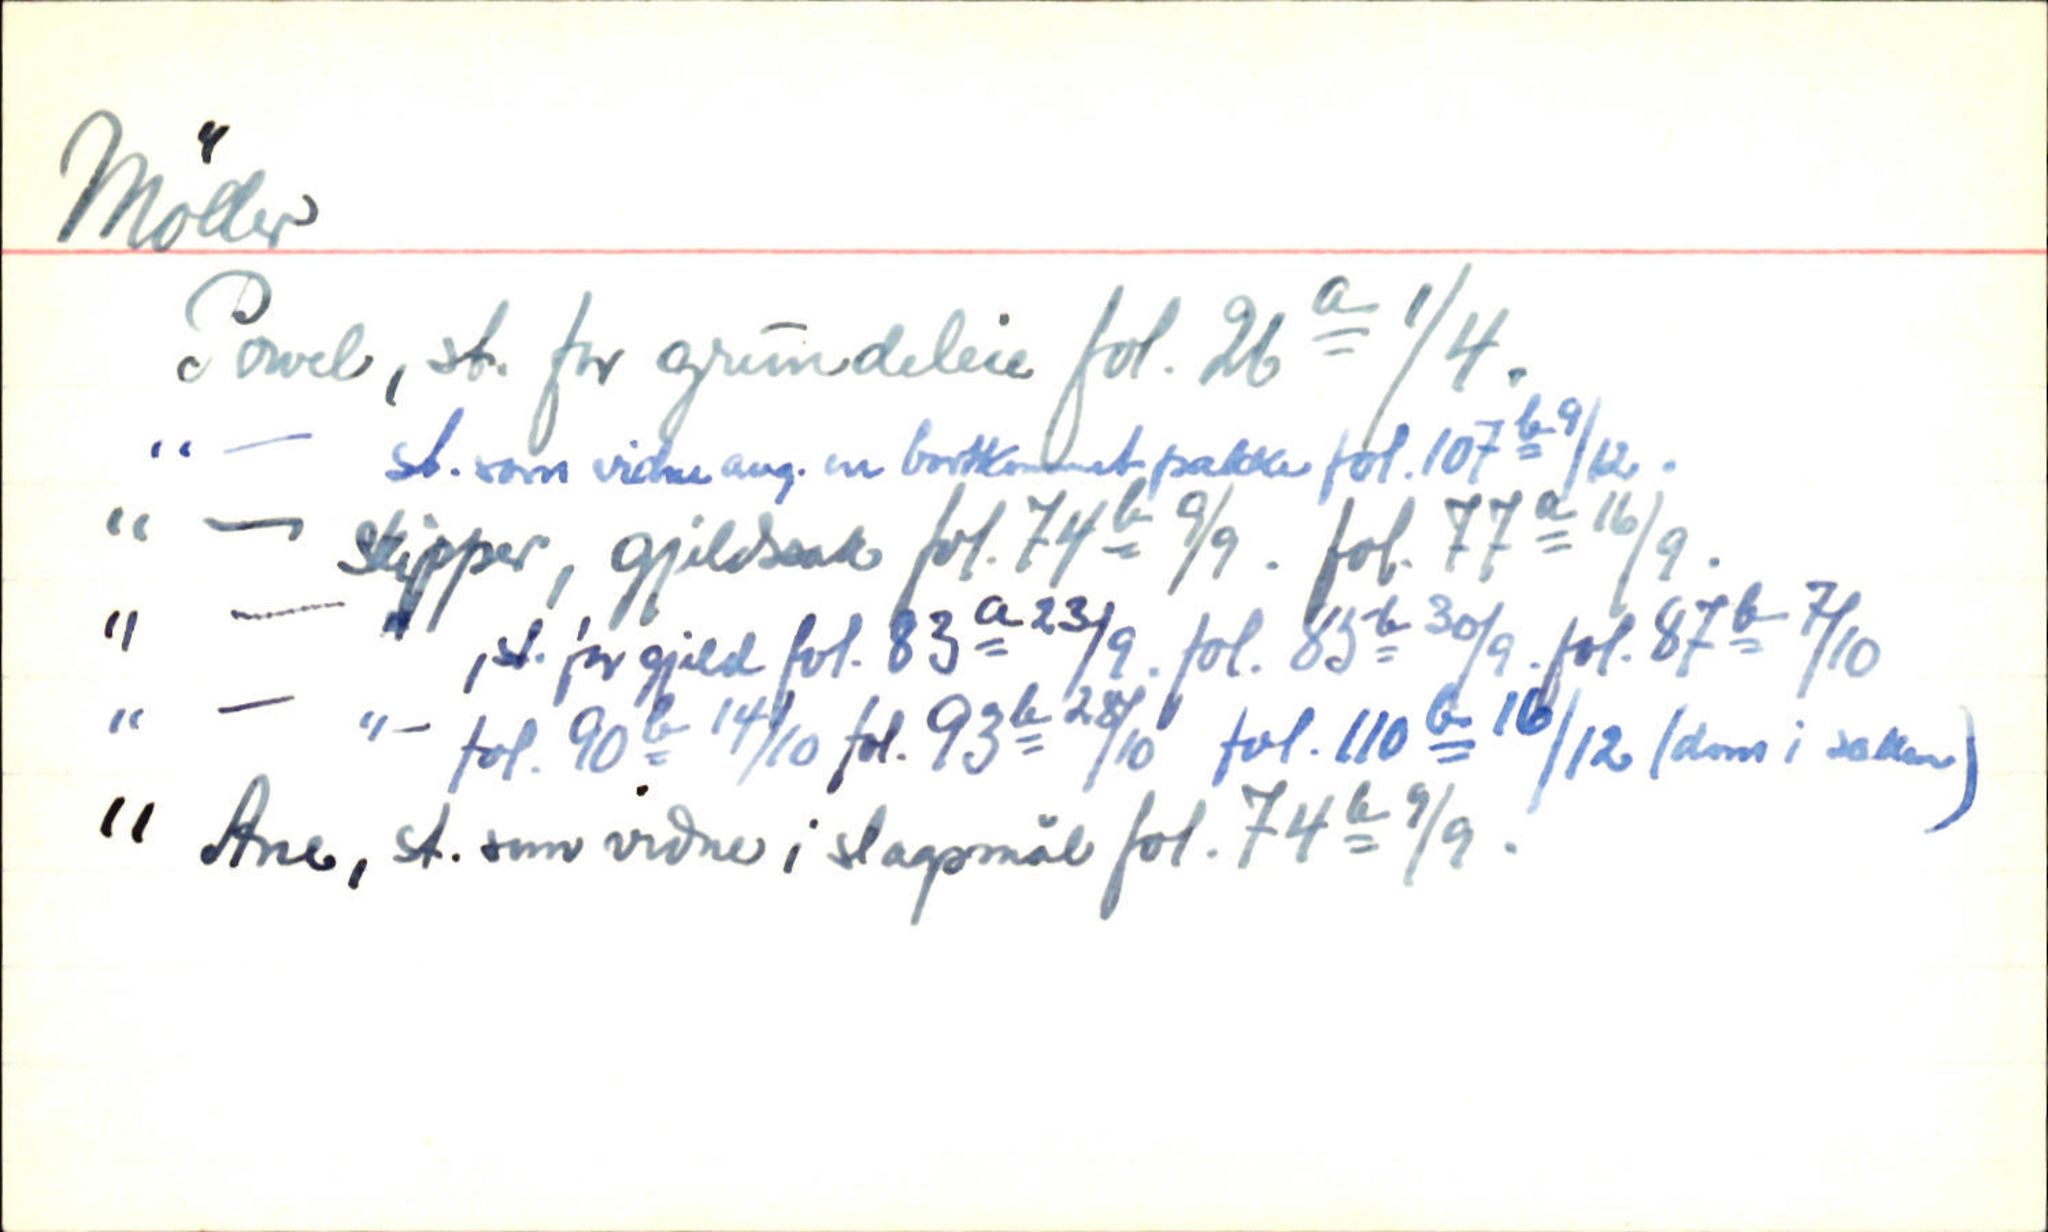 Möller
Powel, st. for grundeleie fol. 26 a 1/4.
" — st. som vidne ang. en bortkommet pakke fol. 107 b 9/12.
" — Skipper, gjeldssak fol. 74 b 9/9. fol. 77 a 16/9.
" — " , st. for gjeld fol. 83 a 23/9. fol. 85 b 30/9. fol. 87 b 7/10
" — " — fol. 90 b 14/10 fol. 93 b 28/10 fol. 110 b 16/12 (dom i saken)
" Ane, st. som vidne i slagsmål fol. 74 b 9/9.